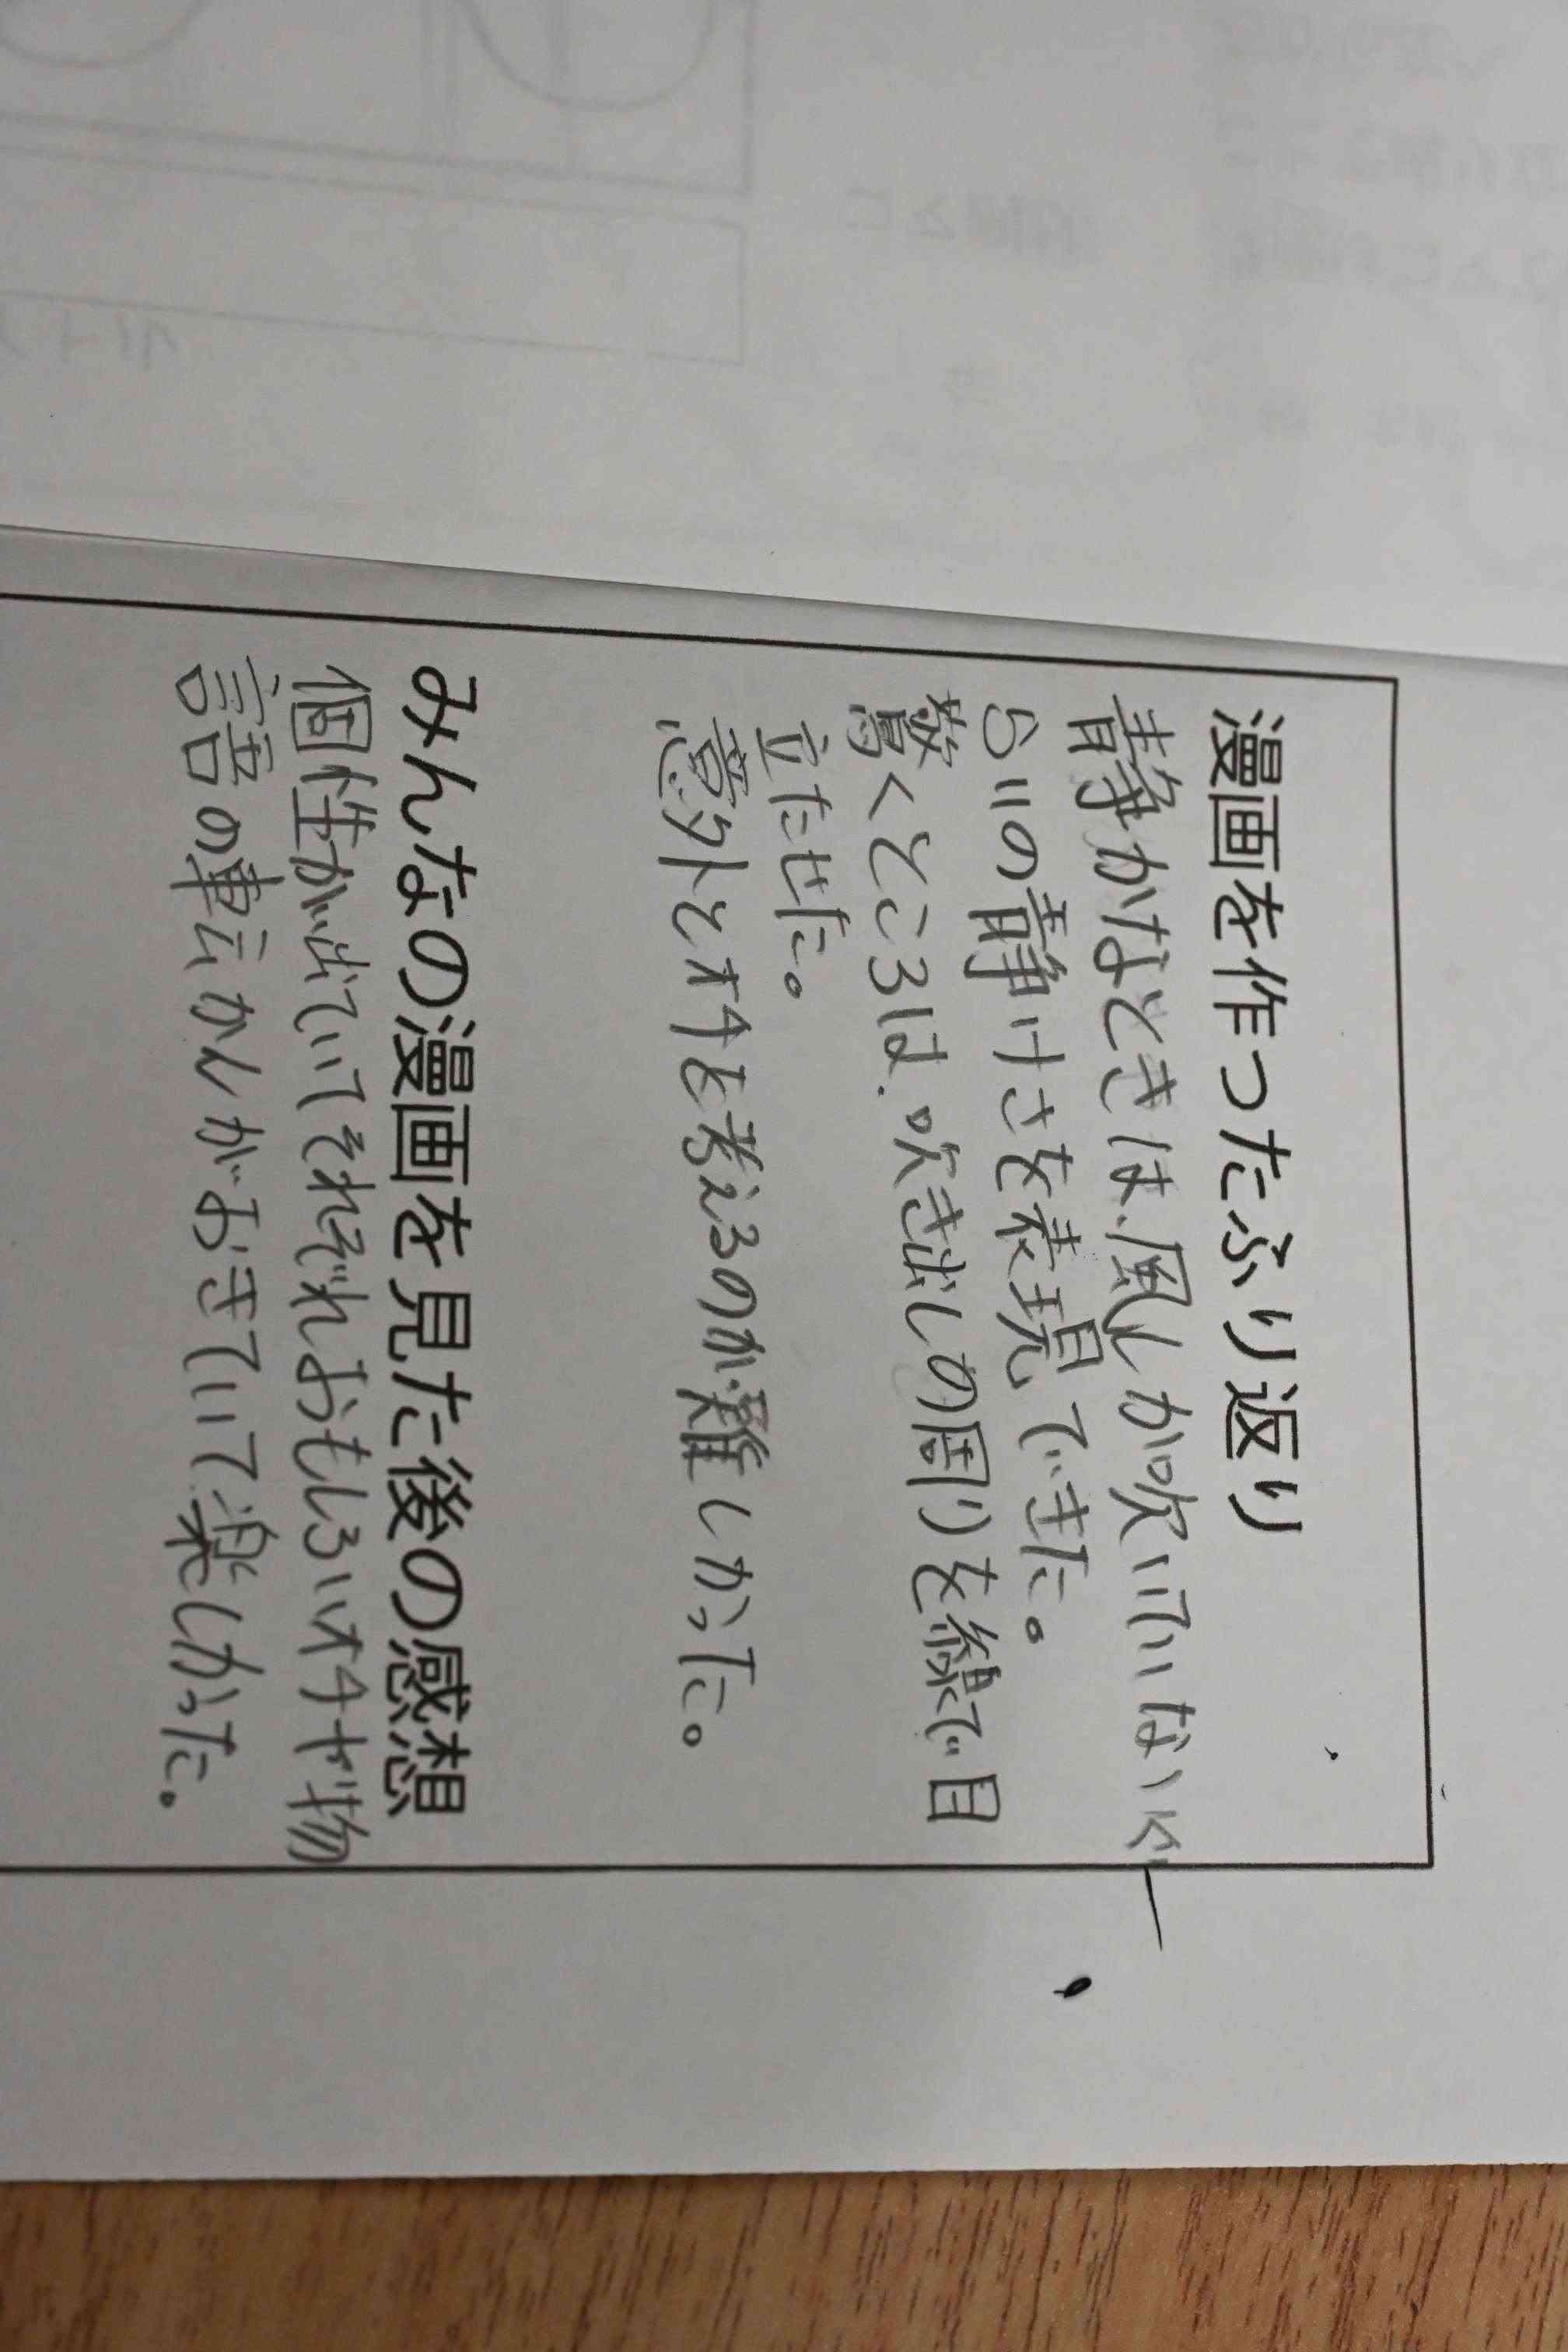 漫画を作ったふり返り
静かなときは、風しか吹いていないく
らいの静けさを表現できた。
驚くところは、吹き出しの周りを線で目
立たせた。
意外とオチを考えるのが難しかった。
みんなの漫画を見た後の感想
個性が出ていてそれぞれおもしろいオチや物
語の転かんがおきていて楽しかった。